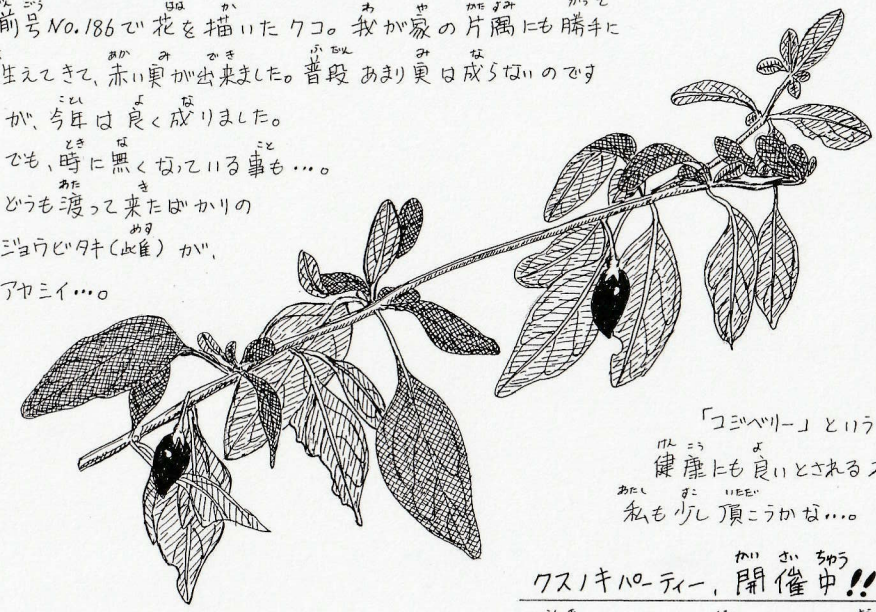 前号No.186で花を描いたクコ。我が家の片隅にも勝手に
生えてきて、赤い実が出来ました。普段あまり実は成らないのです
が、今年は良く成りました。
でも、時に無くなっている事も…。
どうも渡って来たばかりの
ジョウビタキ(雌)が、
アヤシイ…。
「コジベリー」という
健康にも良いとされるス
私も少し頂こうかな…。
クスノキパーティー、開催中!!